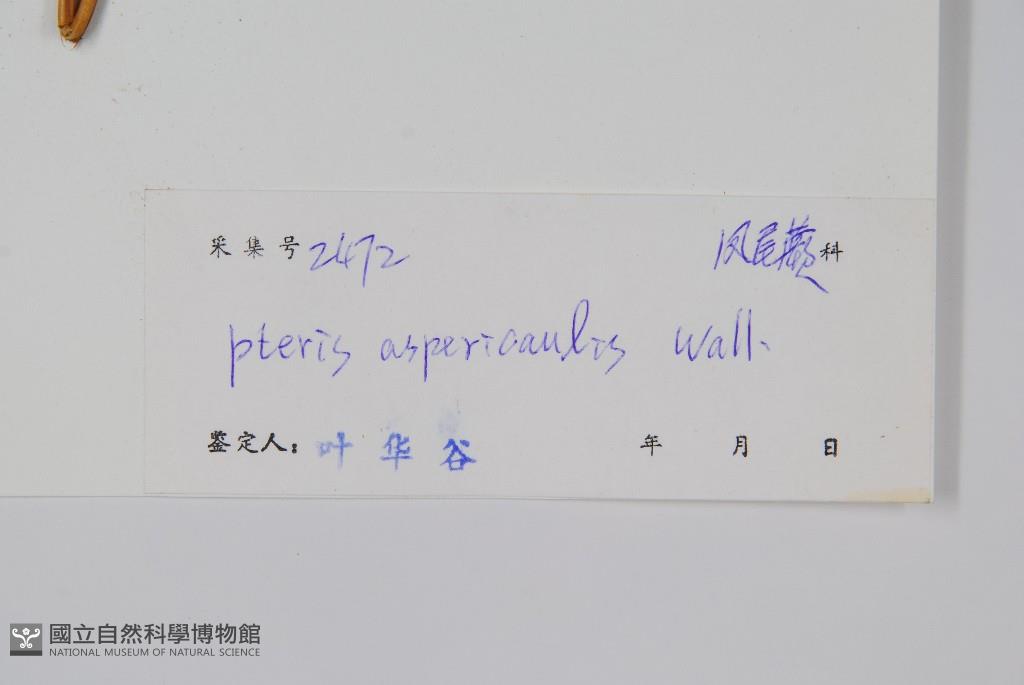 采集号 2472 凤尾蕨科
pteris aspericaulis Wall.
鉴定人： 叶华谷 年 月 日
國立自然科學博物館
NATIONAL MUSEUM OF NATURAL SCIENCE